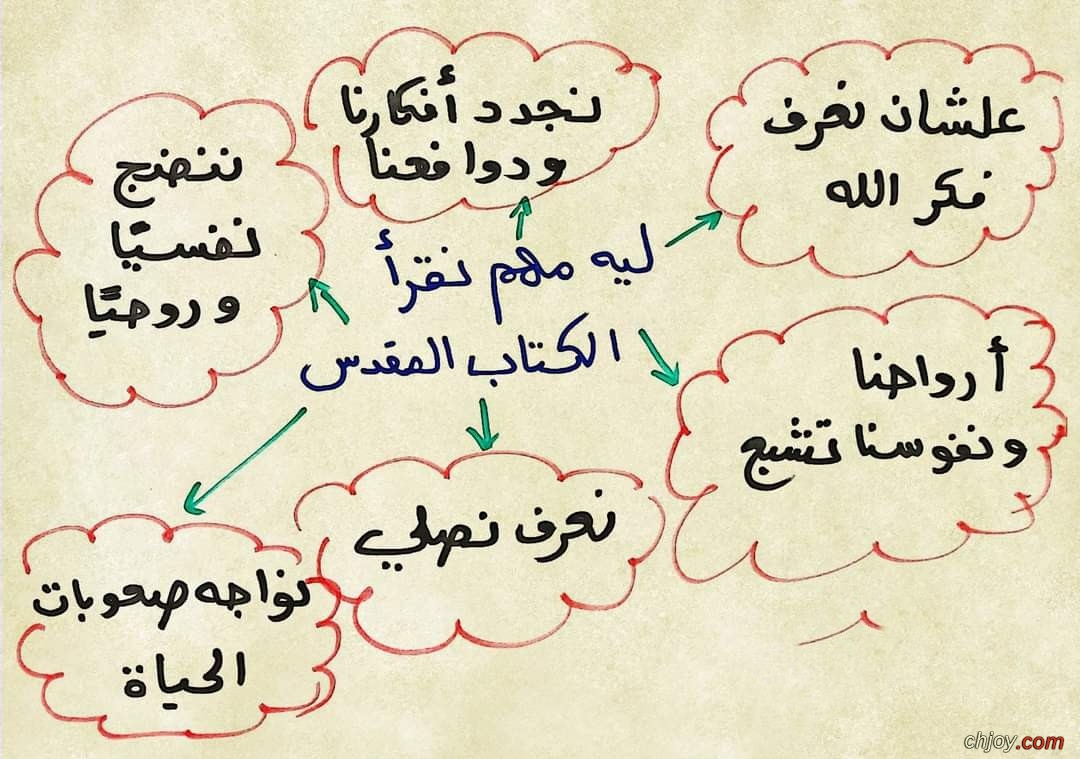 ليه مهم نقرأ
الكتاب المقدس
علشان نعرف
فكر الله
نجدد أفكارنا
ودوافعنا
ننضج
نفسيًا
وروحيًا
أرواحنا
ونفوسنا تشبع
نعرف نصلي
نواجه صعوبات
الحياة
chjoy.com